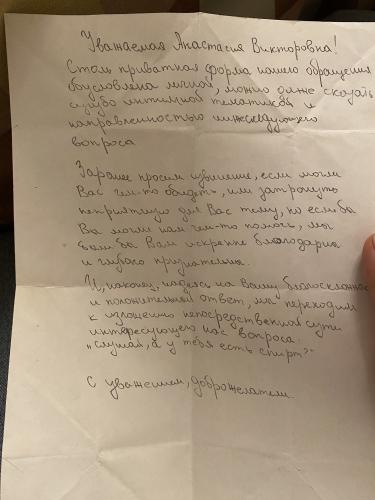 Уважаемая Анастасия Викторовна!
Столь приватная форма нашего обращения
обусловлена личной, можно даже сказать
сугубо интимной тематикой и
направленностью нижеследующего
вопроса
Заранее просим извинение, если могли
Вас чем-то обидеть, или затронуть
неприятную для Вас тему, но если ба
Вы могли нам чем-то помочь, мы
были ба Вам искренне благодарны
и глубоко признательны.
И, наконец, надеясь на Вашу благосклонность
и положительный ответ, мы переходим
к изложению непосредственной сути
интересующего нас вопроса:
"слушай, а у тебя есть спирт?"
С уважением, доброжелатели.